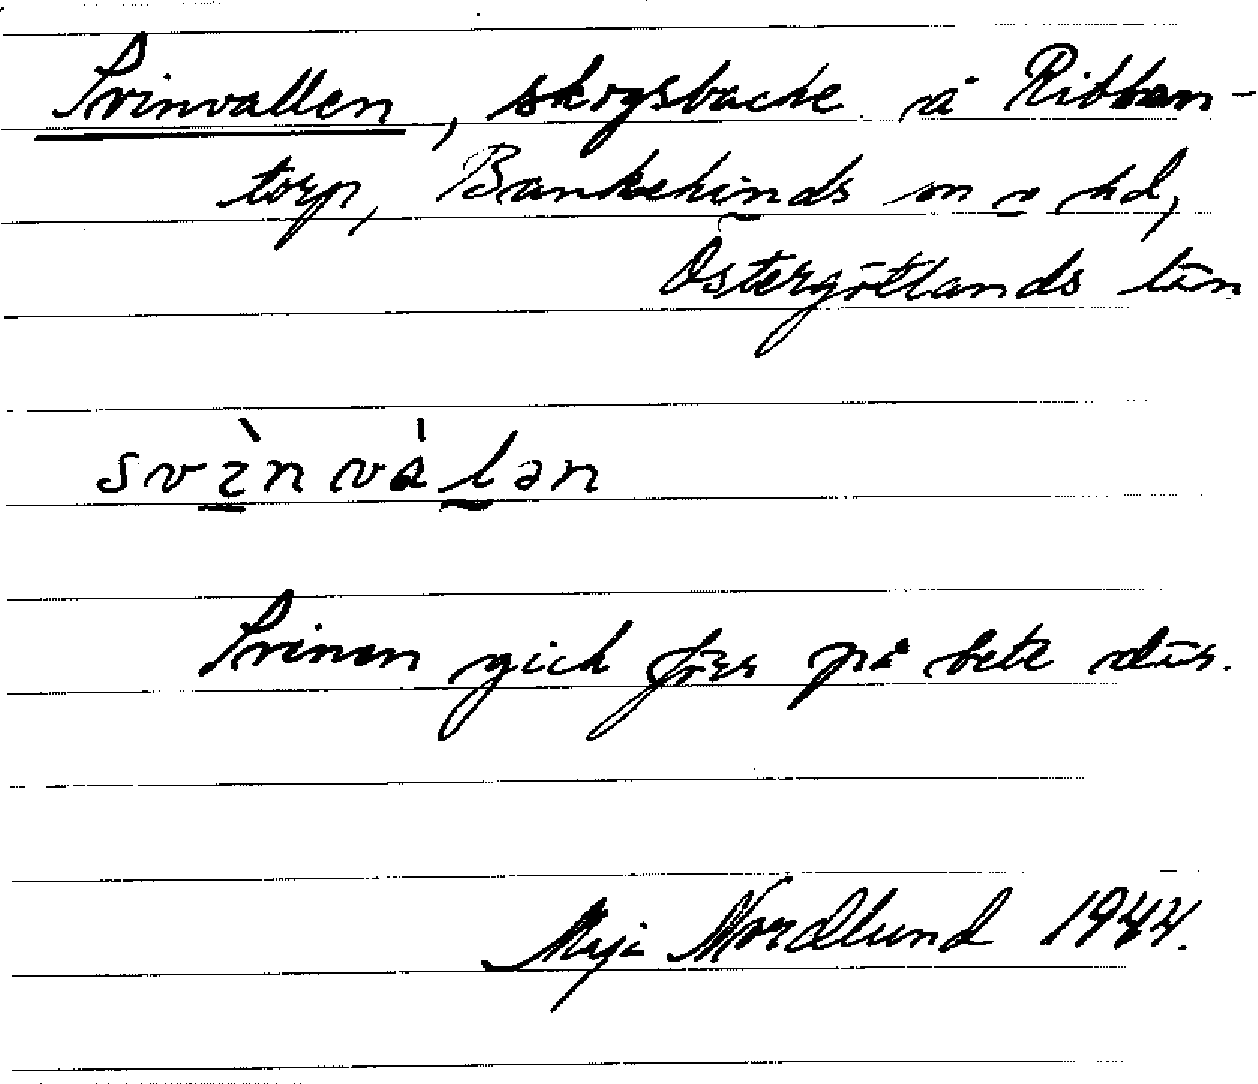 Svinvallen, skogsbacke å Ribban-
torp, Bankekinds sn o hd,
Östergötlands län
svìnvàlən
Svinen gick förr på bete där.
Maja Nordlund 1944.